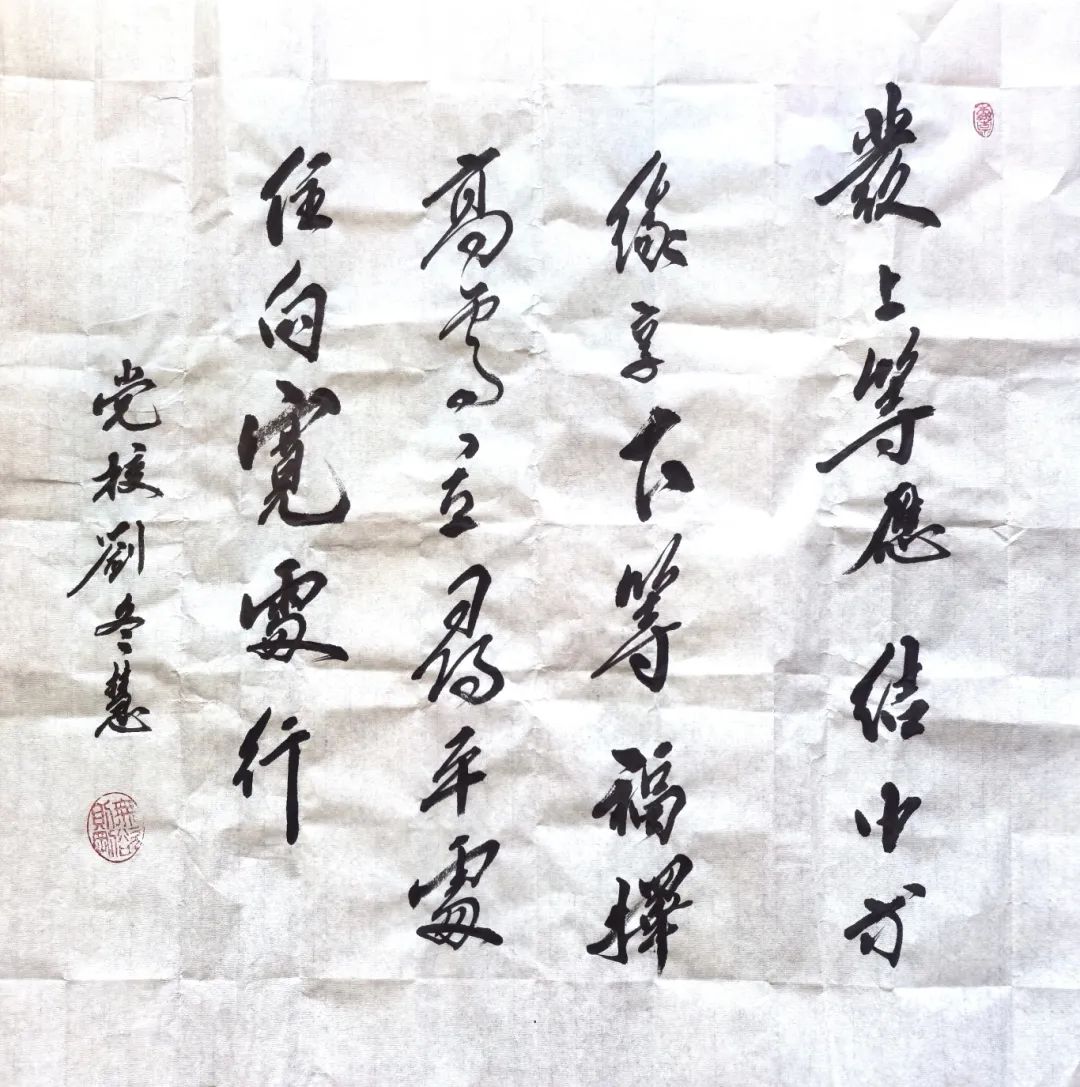 發上等愿結中等
緣享下等福擇
高處立尋平處
住向寬處行
党校劉冬慧
無欲則剛